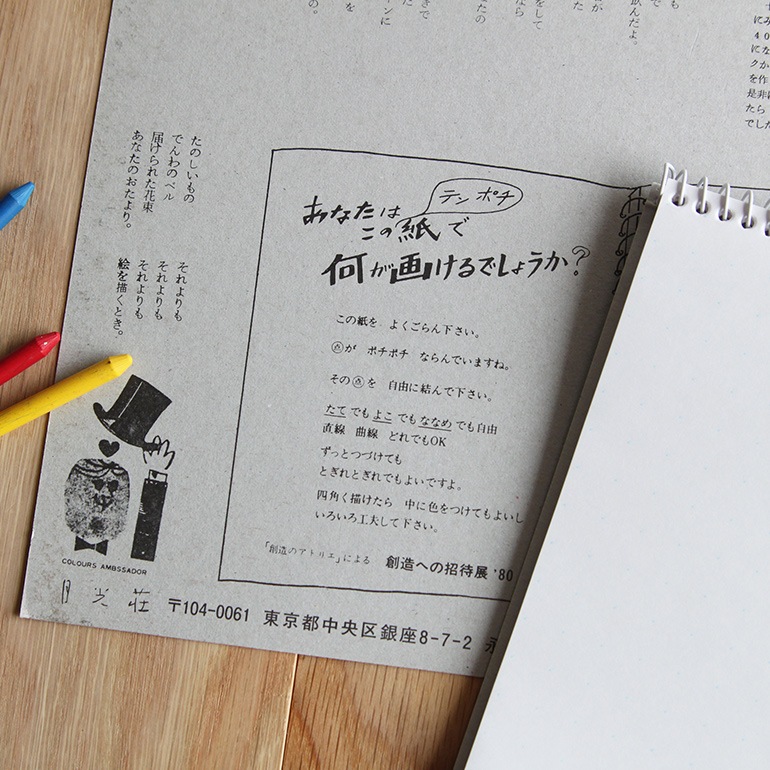 たのしいもの
でんわのベル
届けられた花束
あなたのおたより。
それよりも
それよりも
それよりも
絵を描くとき。
テン ポチ
あなたは
この紙で
何が画けるでしょうか?
この紙を よくごらん下さい。
点が ポチポチ ならんでいますね。
その点を 自由に結んで下さい。
たてでもよこでもななめでも自由
直線 曲線 どれでもOK
ずっとつづけても
とぎれとぎれでもよいですよ。
四角く描けたら 中に色をつけてもよいし
いろいろ工夫して下さい。
「創造のアトリエ」による 創造への招待展 '80
COLOURS AMBSSADOR
月光荘 〒104-0061 東京都中央区銀座8-7-2